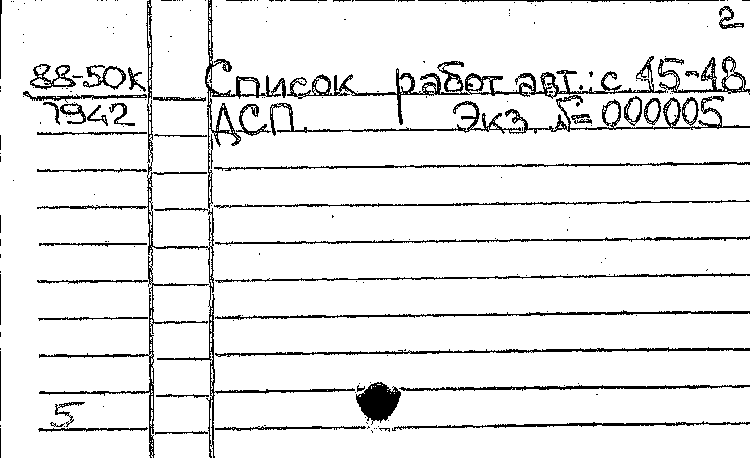 2
88-50к Список работ авт.: с. 45-48
7942 ДСП. Экз. №= 000005
5